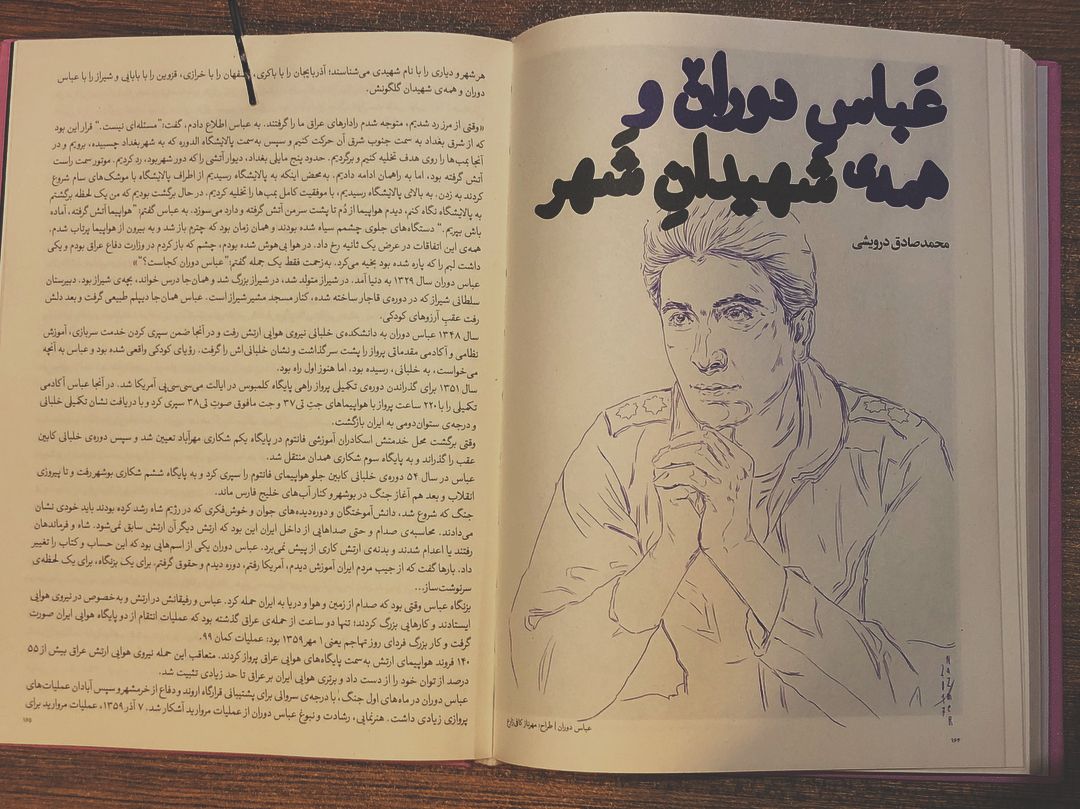 عَباسِ دوران و
همه‌ی شهیدانِ شهر
محمدصادق درویشی
عباس دوران | طراح: مهرناز کافی‌زارع
۱۶۴
هر شهر و دیاری را با نام شهیدی می‌شناسند؛ آذربایجان را با باکری، اصفهان را با خرازی، قزوین را با بابایی و شیراز را با عباس
دوران و همه‌ی شهیدان گلگونش.
«وقتی از مرز رد شدیم، متوجه شدم رادارهای عراقی ما را گرفتند. به عباس اطلاع دادم، گفت: "مسئله‌ای نیست." قرار این بود
که از شرق بغداد به سمت جنوب شرق آن حرکت کنیم و سپس به‌سمت پالایشگاه الدوره که به شهر بغداد چسبیده، برویم و در
آنجا بمب‌ها را روی هدف تخلیه کنیم و برگردیم. حدود پنج مایلی بغداد، دیوار آتش را که دور شهر بود، رد کردیم. موتور سمت راست
آتش گرفته بود، اما به راهمان ادامه دادیم. به‌محض اینکه به پالایشگاه رسیدیم از اطراف پالایشگاه با موشک‌های سام شروع
کردند به زدن. به بالای پالایشگاه رسیدیم، با موفقیت کامل بمب‌ها را تخلیه کردیم. در حال برگشت بودیم که من یک لحظه برگشتم
به پالایشگاه نگاه کنم، دیدم هواپیما از دُم تا پشت سر من آتش گرفته و دارد می‌سوزد. به عباس گفتم: "هواپیما آتش گرفته، آماده
باش بپریم." دستگاه‌های جلوی چشمم سیاه شده بودند و همان زمان بود که چترم باز شد و به بیرون از هواپیما پرتاب شدم.
همه‌ی این اتفاقات در عرض یک ثانیه رخ داد. در هوا بی‌هوش شده بودم، چشم که باز کردم در وزارت دفاع عراق بودم و یکی
داشت لبم را که پاره شده بود بخیه می‌کرد. به‌زحمت فقط یک جمله گفتم: "عباس دوران کجاست؟"»
عباس دوران سال ۱۳۲۹ به دنیا آمد. در شیراز متولد شد، در شیراز بزرگ شد و همان‌جا درس خواند، بچه‌ی شیراز بود. دبیرستان
سلطانی شیراز که در دوره‌ی قاجار ساخته شده، کنار مسجد مشیر شیراز است. عباس همان‌جا دیپلم طبیعی گرفت و بعد دلش
رفت عقبِ آرزوهای کودکی.
سال ۱۳۴۸ عباس دوران به دانشکده‌ی خلبانی نیروی هوایی ارتش رفت و در آنجا ضمن سپری کردن خدمت سربازی، آموزش
نظامی و آکادمی مقدماتی پرواز را پشت سر گذاشت و نشان خلبانی‌اش را گرفت. رؤیای کودکی واقعی شده بود و عباس به آنچه
می‌خواست، به خلبانی، رسیده بود، اما هنوز اول راه بود.
سال ۱۳۵۱ برای گذراندن دوره‌ی تکمیلی پرواز راهی پایگاه کلمبوس در ایالت می‌سی‌سی‌پی آمریکا شد. در آنجا عباس آکادمی
تکمیلی را با ۲۲۰ ساعت پرواز با هواپیماهای جتِ تی۳۷ و جت مافوق صوتِ تی۳۸ سپری کرد و با دریافت نشان تکمیلی خلبانی
و درجه‌ی ستوان‌دومی به ایران بازگشت.
وقتی برگشت محل خدمتش اسکادران آموزشی فانتوم در پایگاه یکم شکاری مهرآباد تعیین شد و سپس دوره‌ی خلبانی کابین
عقب را گذراند و به پایگاه سوم شکاری همدان منتقل شد.
عباس در سال ۵۴ دوره‌ی خلبانی کابین جلو هواپیمای فانتوم را سپری کرد و به پایگاه ششم شکاری بوشهر رفت و تا پیروزی
انقلاب و بعد هم آغاز جنگ در بوشهر و کنار آب‌های خلیج فارس ماند.
جنگ که شروع شد، دانش‌آموختگان و دوره‌دیده‌های جوان و خوش‌فکری که در رژیم شاه رشد کرده بودند باید خودی نشان
می‌دادند. محاسبه‌ی صدام و حتی صداهایی از داخل ایران این بود که ارتش دیگر آن ارتش سابق نمی‌شود. شاه و فرماندهان
رفتند یا اعدام شدند و بدنه‌ی ارتش کاری از پیش نمی‌برد. عباس دوران یکی از اسم‌هایی بود که این حساب و کتاب را تغییر
داد. بارها گفت که از جیب مردم ایران آموزش دیدم، آمریکا رفتم، دوره دیدم و حقوق گرفتم، برای یک بزنگاه، برای یک لحظه‌ی
سرنوشت‌ساز...
بزنگاه عباس وقتی بود که صدام از زمین و هوا و دریا به ایران حمله کرد. عباس و رفیقانش در ارتش و به‌خصوص در نیروی هوایی
ایستادند و کارهایی بزرگ کردند؛ تنها دو ساعت از حمله‌ی عراق گذشته بود که عملیات انتقام از دو پایگاه هوایی ایران صورت
گرفت و کار بزرگ فردای روز تهاجم یعنی ۱ مهر ۱۳۵۹ بود: عملیات کمان ۹۹.
۱۴۰ فروند هواپیمای ارتش به‌سمت پایگاه‌های هوایی عراق پرواز کردند. متعاقب این حمله نیروی هوایی ارتش عراق بیش از ۵۵
درصد از توان خود را از دست داد و برتری هوایی ایران بر عراق تا حد زیادی تثبیت شد.
عباس دوران در ماه‌های اول جنگ، با درجه‌ی سروانی برای پشتیبانی قرارگاه اروند و دفاع از خرمشهر و سپس آبادان عملیات‌های
پروازی زیادی داشت. هنرنمایی، رشادت و نبوغ عباس دوران از عملیات مروارید آشکار شد. ۷ آذر ۱۳۵۹، عملیات مروارید برای
۱۶۵